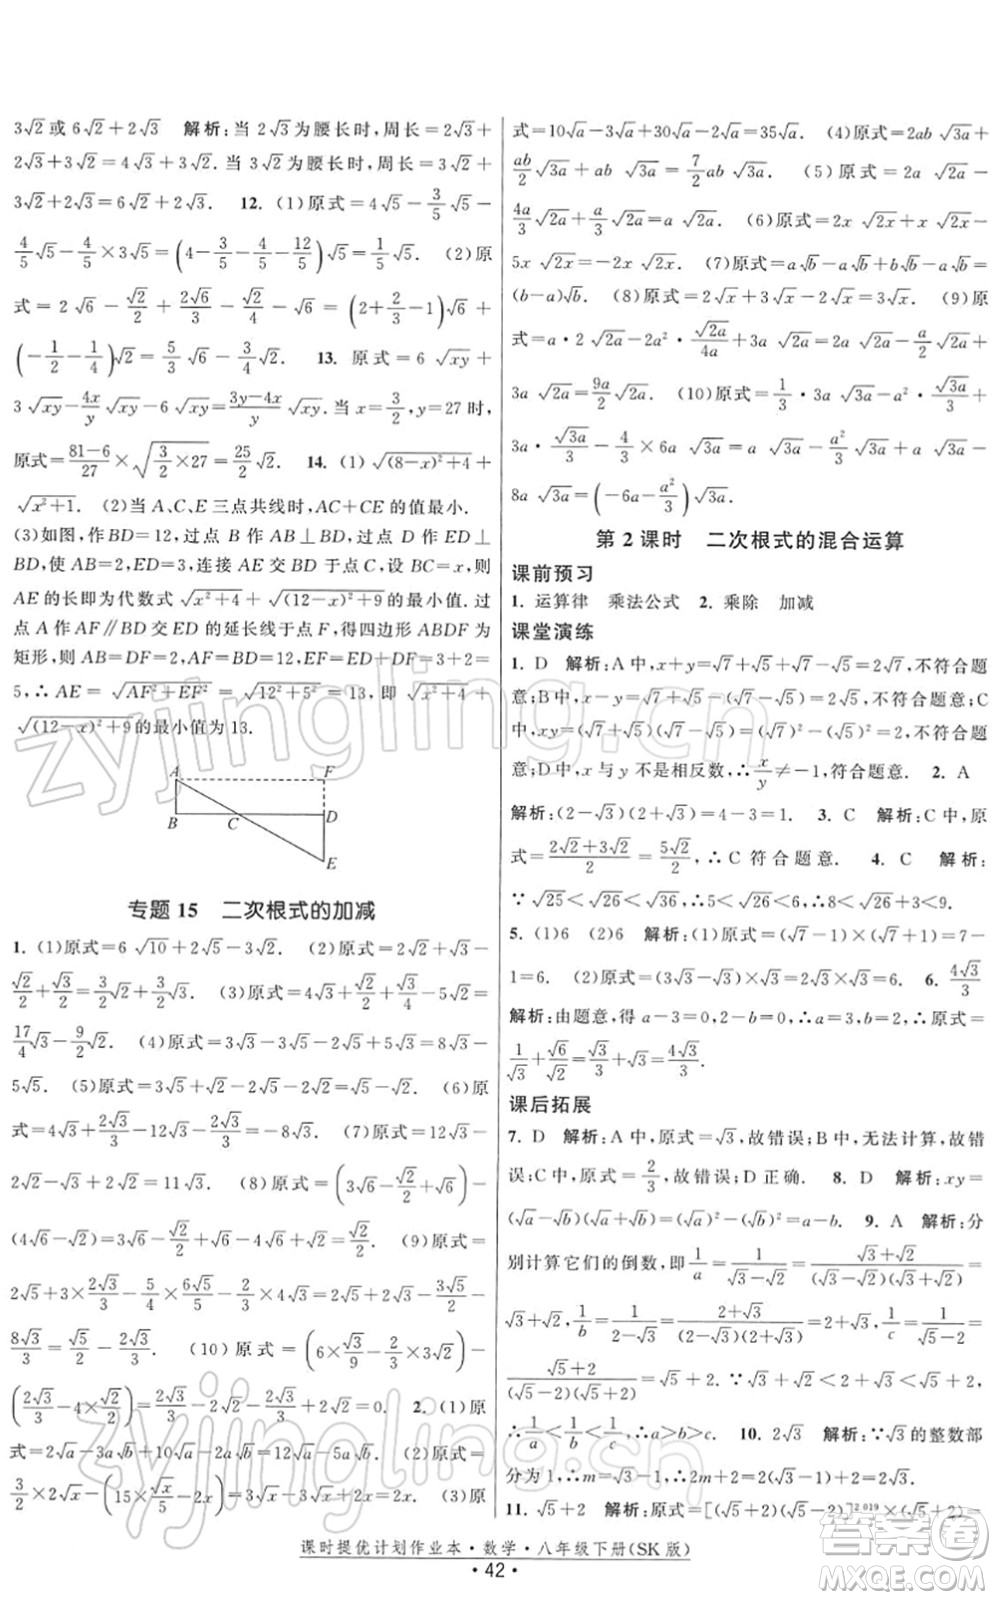 3√2或6√2+2√3　解析:当2√3为腰长时,周长=2√3+
2√3+3√2=4√3+3√2.当3√2为腰长时,周长=3√2+
3√2+2√3=6√2+2√3.　12.(1)原式=4√5-3/5√5-
4/5√5-4/5×3√5=(4-3/5-4/5-12/5)√5=1/5√5.　(2)原
式=2√3-√2/2+2√6/3÷√2-√3-√2/4=(2+2/3-1)√3+
(-1/2-1/4)√2=5/3√3-3/4√2.　13.原式=6√xy+
3√xy-4x/y√xy-6√xy=(3y-4x)/y√xy.当x=3/2,y=27时,
原式=(81-6)/27×√(3/2×27)=25/2√2.　14.(1)√((8-x)²+4)+
√(x²+1).　(2)当A、C、E三点共线时,AC+CE的值最小.
(3)如图,作BD=12,过点B作AB⊥BD,过点D作ED⊥
BD,使AB=2,ED=3,连接AE交BD于点C,设BC=x,则
AE的长即为代数式√(x²+4)+√((12-x)²+9)的最小值.过
点A作AF∥BD交ED的延长线于点F,得四边形ABDF为
矩形,则AB=DF=2,AF=BD=12,EF=ED+DF=3+2=
5,∴AE=√(AF²+EF²)=√(12²+5²)=13,即√(x²+4)+
√((12-x)²+9)的最小值为13.
A
F
B
C
D
E
专题15　二次根式的加减
1.(1)原式=6√10+2√5-3√2.　(2)原式=2√2+√3-
√2/2+√3/2=3/2√2+3/2√3.　(3)原式=4√3+√2/2+√3/4-5√2=
17/4√3-9/2√2.　(4)原式=3√3-3√5-2√5+5√3=8√3-
5√5.　(5)原式=3√5+√2-2√5-2√2=√5-√2.　(6)原
式=4√3+2√3/3-12√3-2√3/3=-8√3.　(7)原式=12√3-
2√3-√2+√3+2√2=11√3+√2.　(8)原式=(3√6-√2/2+√6)-
(4√6-√2)=√2/2.　(9)原式=
3×2√3/3-5/4×4√2/5+6√2/2-3/2×4√3/3=2√3-√2+3√2-
8√3/3=2√2-2√3/3.　(10)原式=(6×√3/9-2/3×3√2)-
(2√3/3-4×√2/2)=2√3/3-2√2-2√3/3+2√2=0.　2.(1)原
式=2√a-3a√b+10√a-2a√b=12√a-5a√b.　(2)原式=
3/2×2√x-(15×√x/5-2x)=3√x-3√x+2x=2x.　(3)原
式=10√a-3√a+30√a-2√a=35√a.　(4)原式=2ab√3a+
ab/2√3a+ab√3a=7/2ab√3a.　(5)原式=2a√2a-
4a/3√2a+a/3√2a=a√2a.　(6)原式=2x√2x+2x√x-
5x√2x=2x√x-3x√2x.　(7)原式=a√b-a√b+b√b-a√b=
(b-a)√b.　(8)原式=2√x+3√x-2√x=3√x.　(9)原
式=a·2√2a-4a²·√2a/4a+3a√2a=2a√2a-a/2√2a+
3a√2a=9a/2√2a.　(10)原式=1/3·3√3a-a²·√3a/3+
3a·√3a/3-4/3×6a√3a=a√3a-a²/3√3a+a√3a-
8a√3a=(-6a-a²/3)√3a.
第2课时　二次根式的混合运算
课前预习
1.运算律　乘法公式　2.乘除　加减
课堂演练
1.D　解析:A中,x+y=√7+√5+√7-√5=2√7,不符合题
意;B中,x-y=√7+√5-√7+√5=2√5,不符合题意;C
中,xy=(√7+√5)(√7-√5)=(√7)²-(√5)²=2,不符合
题意;D中,x与y不是相反数,∴x/y≠-1,符合题意.　2.A
解析:(2-√3)(2+√3)=4-3=1.　3.C　解析:C中,原
式=(2√2+3√2)/2=5√2/2,∴C符合题意.　4.C　解析:
∵√25<√26<√36,∴5<√26<6,∴8<√26+3<9.
5.(1)6　(2)6　解析:(1)原式=(√7-1)×(√7+1)=7-
1=6.　(2)原式=(3√3-√3)×√3=2√3×√3=6.　6.4√3/3
解析:由题意,得a-3=0,2-b=0,∴a=3,b=2,∴原式=
1/√3+√6/√2=√3/3+√3=4√3/3.
课后拓展
7.D　解析:A中,原式=√3,故错误;B中,无法计算,故错
误;C中,原式=2/3,故错误;D正确.　8.D　解析:xy=
(√a-√b)(√a+√b)=(√a)²-(√b)²=a-b.　9.A　解析:分
别计算它们的倒数,即1/a=1/(√3-√2)=(√3+√2)/((√3-√2)(√3+√2))=
√3+√2,1/b=1/(2-√3)=(2+√3)/((2-√3)(2+√3))=2+√3,1/c=1/(√5-2)=
(√5+2)/((√5-2)(√5+2))=√5+2.∵√3+√2<2+√3<√5+2,
∴1/a<1/b<1/c,∴a>b>c.　10.2√3　解析:∵√3的整数部
分为1,∴m=√3-1,∴2m+2=2√3-2+2=2√3.
11.√5+2　解析:原式=[(√5+2)(√5-2)]²⁰¹⁹×(√5+2)
课时提优计划作业本·数学·八年级下册(SK版)
·42·
zyjingling.cn
zyjingling.cn
答案圈
MXQE.COM